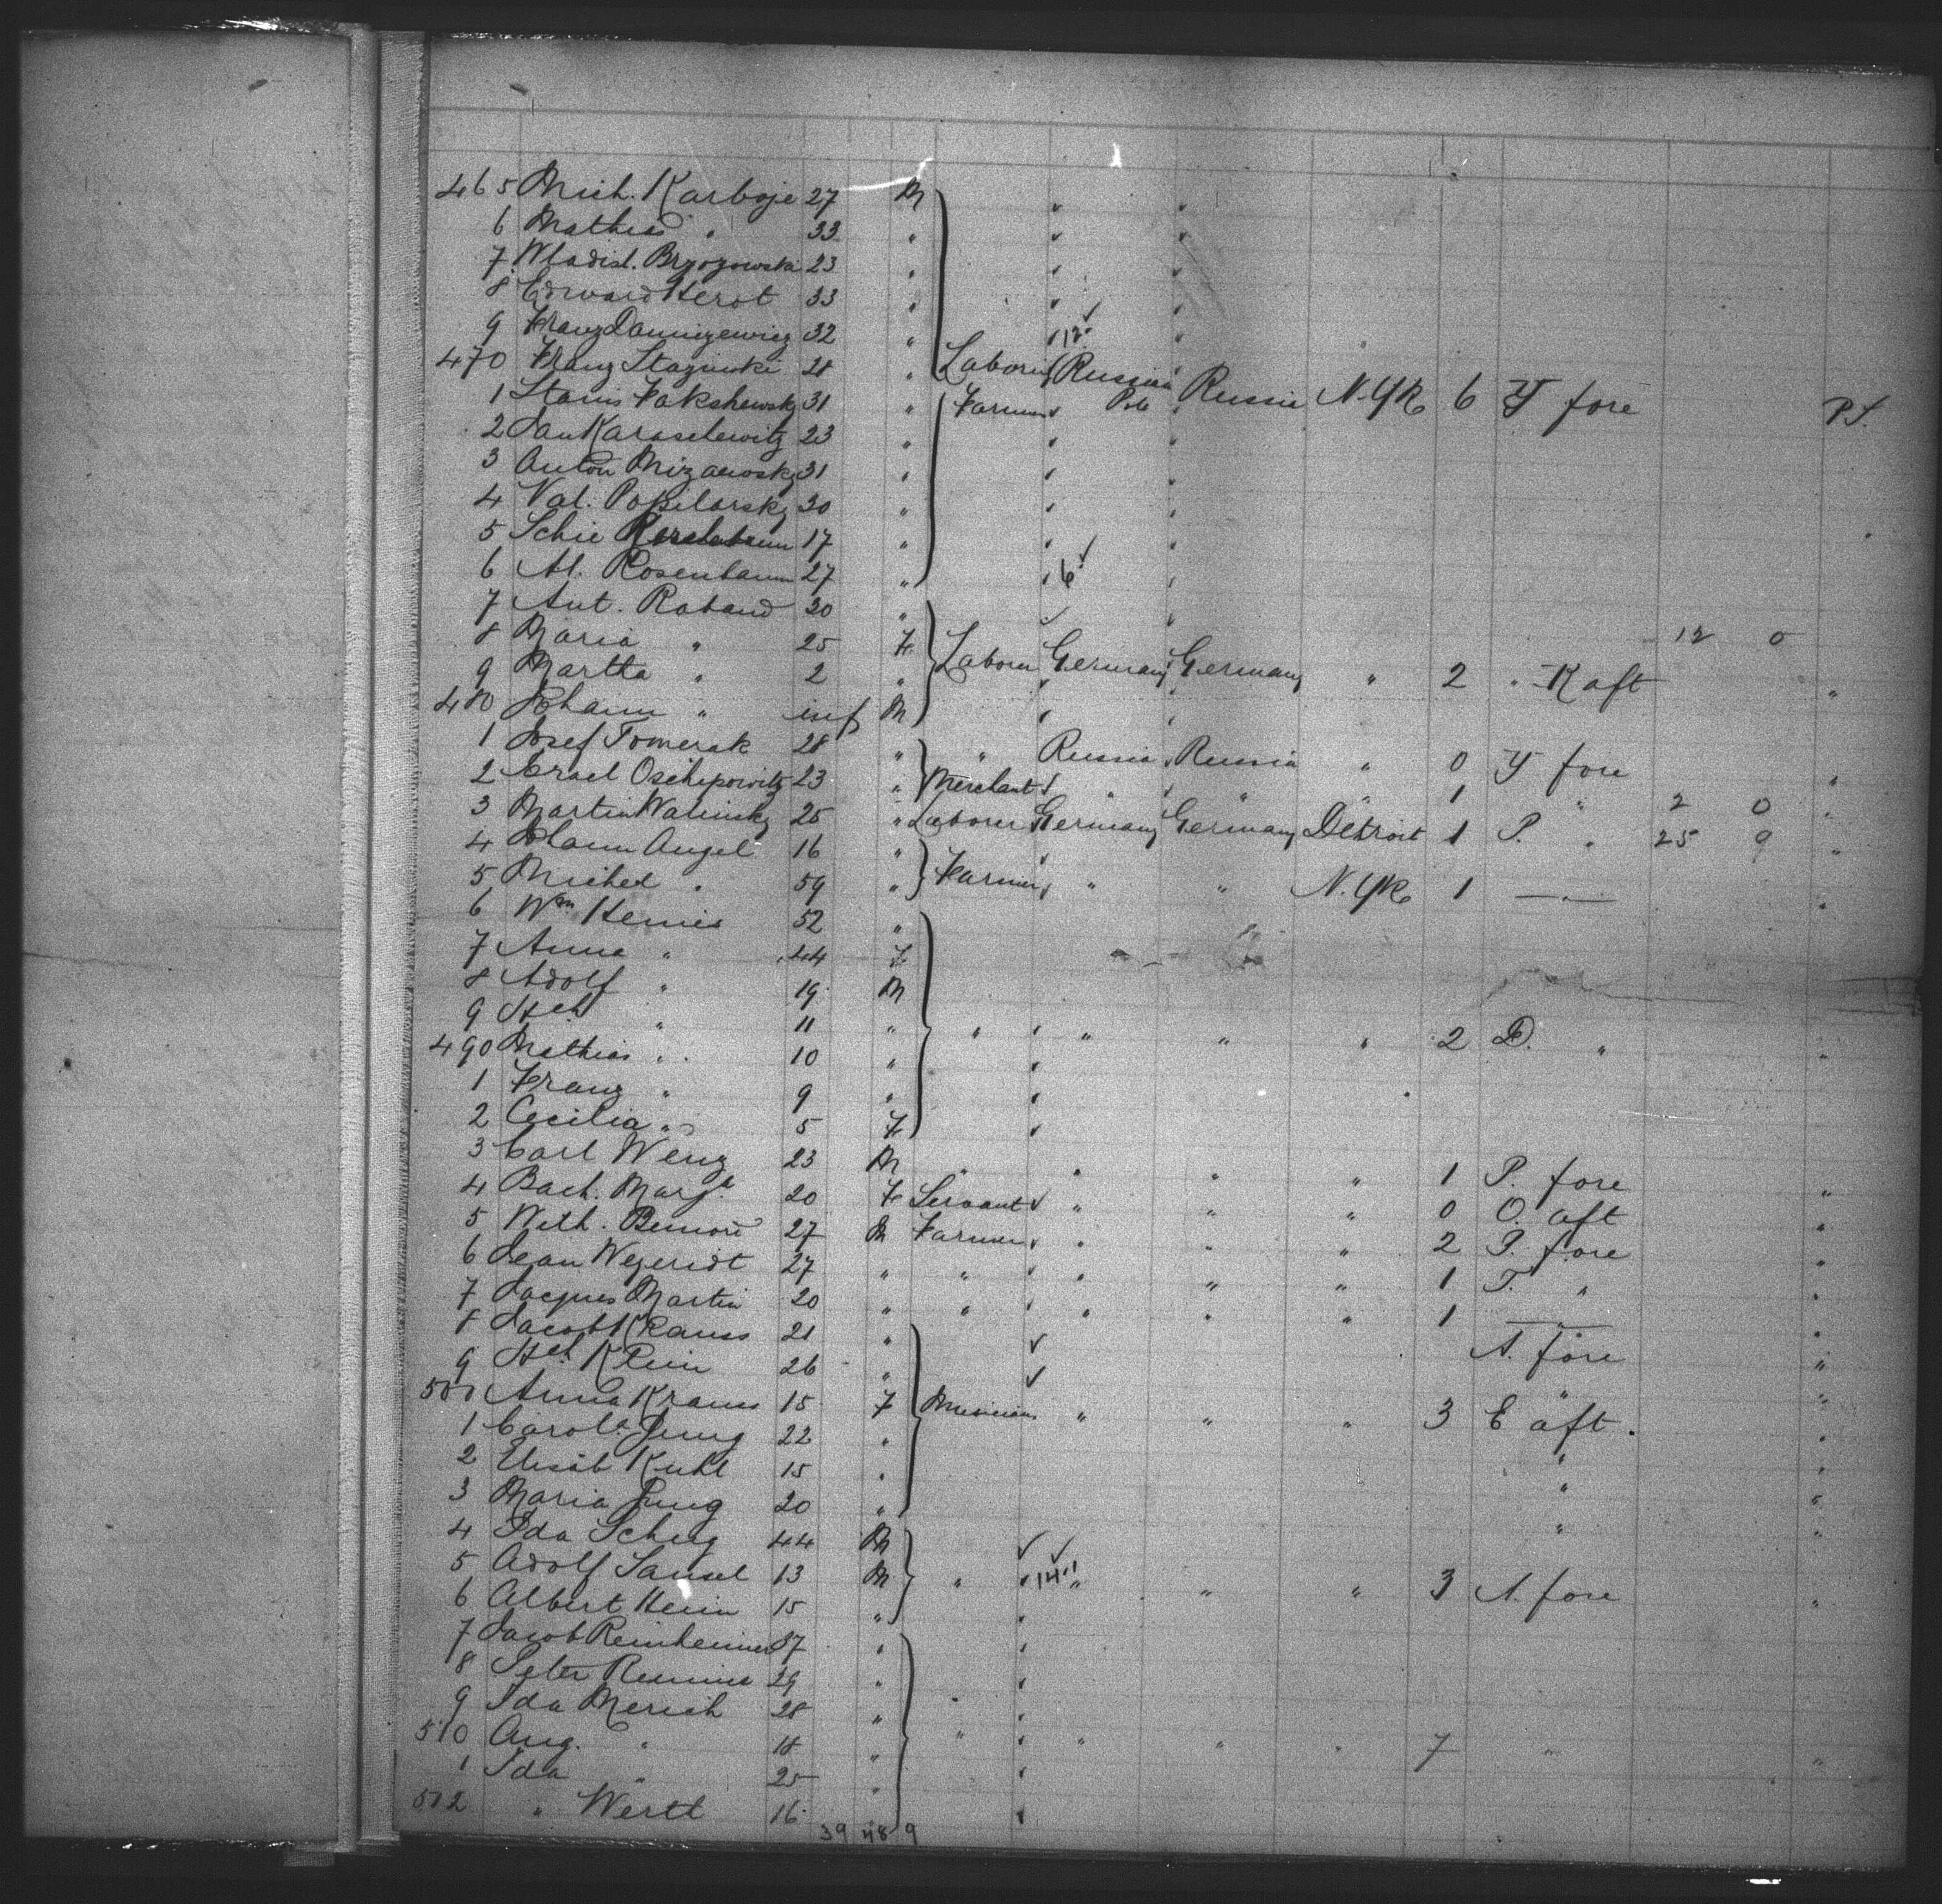 465 Mich. Karboje 27 M " "
6 Mathias " 33 " " "
7 Wladisl. Brzozowski 23 " " "
8 Edward Herot 33 " " "
9 Franz Danuszewicz 32 " 12 "
470 Franz Stazinski 28 " Laborer Russian Russia N.Yk 6 Y fore P.S.
1 Stanis 31 " Farmer Pole "
2 Jan Karaschewitz 23 " " "
3 Anton 31 " " "
4 Val. 30 " " "
5 Schie 17 " " "
6 Al. Rosenbaum 27 " 6 "
7 Ant. Raband 30 " "
8 Maria " 25 F 12 0
9 Martha " 2 " Laborer Germany Germany " 2 " K aft "
480 Johann " inf M
1 Josef Tomerak 28 " " Russia Russia " 0 Y fore "
2 Israel Oschepowitz 23 " Merchant " " " 1 " 2 0 "
3 Martin Walinsky 25 " Laborer Germany Germany Detroit 1 P. " 25 9 "
4 Johann Angel 16 "
5 Michel " 59 " Farmer " " N.Yk 1 — " — "
6 Wm Hennes 52 "
7 Anna " 44 F
8 Adolf " 19 M
9 Hch " 11 " " " " " 2 D. " "
490 Mathias " 10 "
1 Franz " 9 "
2 Cecilia " 5 F
3 Carl Wenz 23 M " " " " 1 P. fore "
4 Bach. Margt. 20 F Servant " " " 0 O. aft "
5 Wilh. 27 M Farmer " " " 2 P. fore "
6 Jean Wegeridt 27 " " " " " 1 T. " "
7 Jacques Martin 20 " " " " " 1 — " — "
8 Jacob Krauss 21 " A. fore "
9 Hch Klein 26 " " "
500 Anna Krauss 15 F Musicians " " " 3 E aft. "
1 Carola Jung 22 " " "
2 Elisab Kuhl 15 " " "
3 Maria Jung 20 " " "
4 Ida Schug 44 M
5 Adolf Sansel 13 M " 14 " " " 3 A. fore "
6 Albert Heim 15 "
7 Jacob Reinheimer 37 "
8 Peter 29 "
9 Ida Merish 28 " "
510 Aug. " 18 " " " " " 7 " "
1 Ida " 25 "
512 " Wertl 16
39 48 9